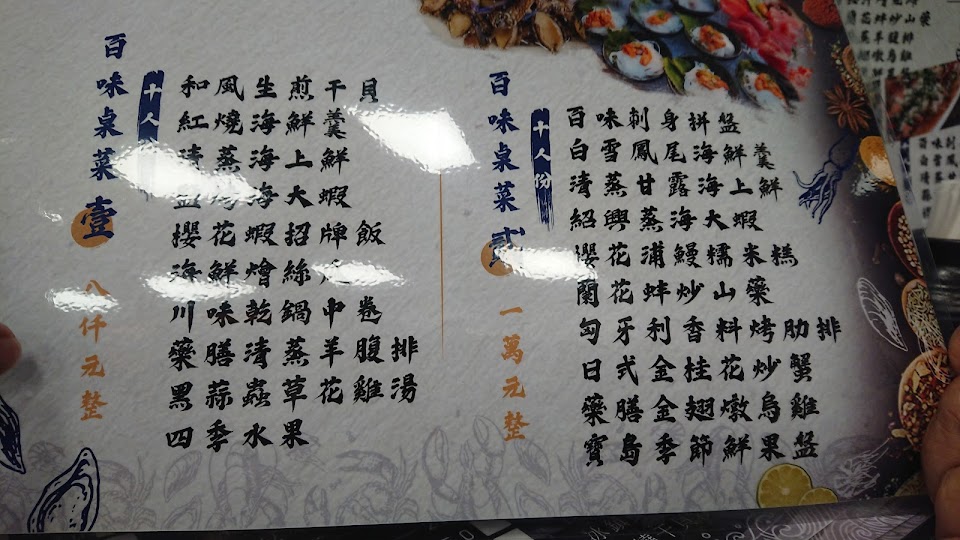 百味桌菜壹
十人
八仟元整
和風生煎干貝
紅燒海鮮羹
清蒸海上鮮
海大蝦
櫻花蝦招牌飯
海鮮燴絲
川味乾鍋中卷
藥膳清蒸羊腹排
黑蒜蟲草花雞湯
四季水果
百味桌菜貳
十人份
一萬元整
百味刺身拼盤
白雪鳳尾海鮮羹
清蒸甘露海上鮮
紹興蒸海大蝦
櫻花浦鰻糯米糕
蘭花蚌炒山藥
匈牙利香料烤肋排
日式金桂花炒蟹
藥膳金翅燉烏雞
寶島季節鮮果盤